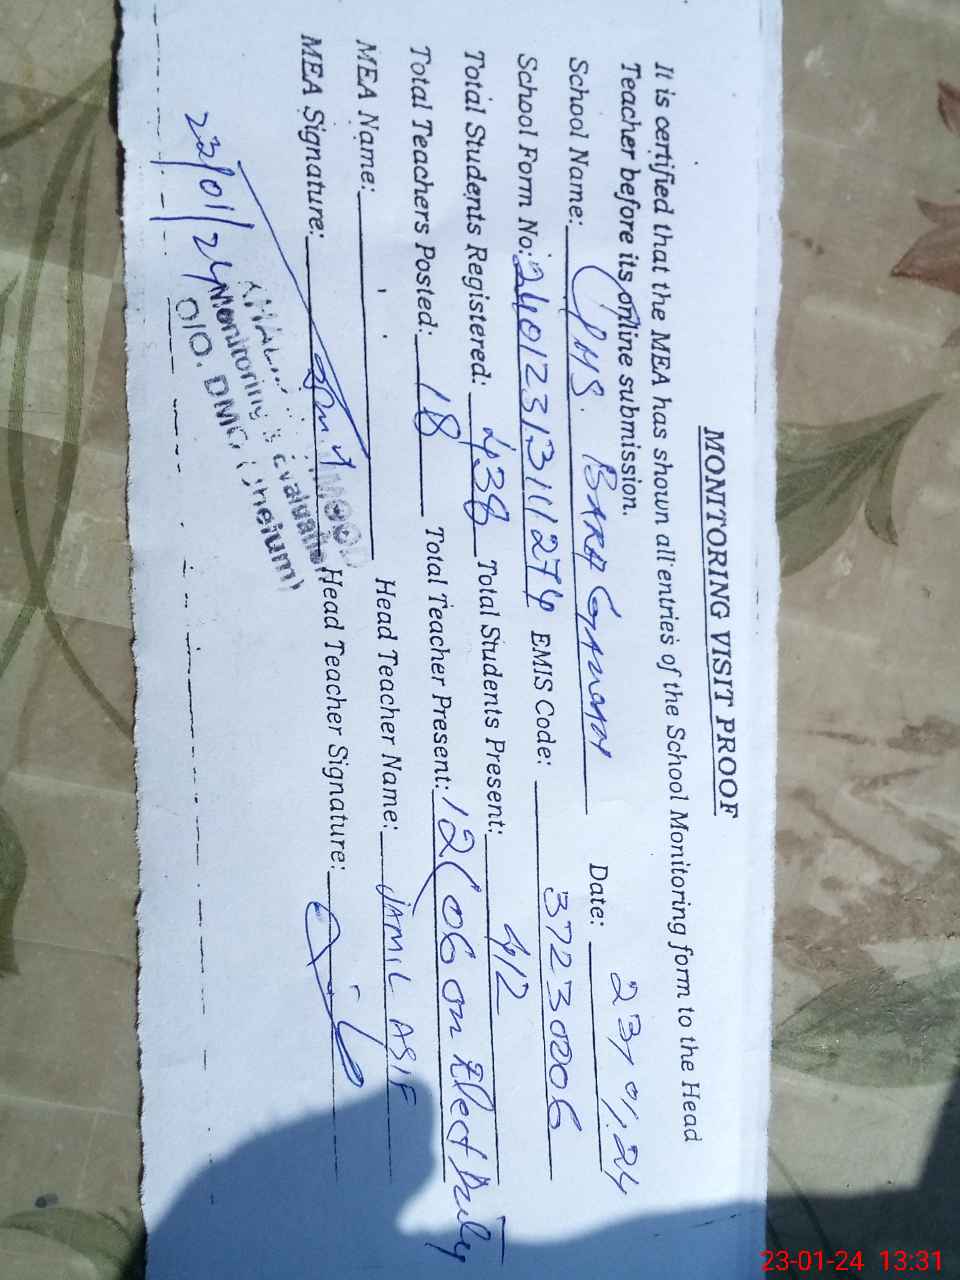 MONITORING VISIT PROOF
It is certified that the MEA has shown all entries of the School Monitoring form to the Head
Teacher before its online submission.
School Name: BARA Date: 23/01/24
School Form No: EMIS Code: 37230206
Total Students Registered: 438 Total Students Present: 412
Total Teachers Posted: 18 Total Teacher Present: 12 (06 on Elect Duty
MEA Name: Head Teacher Name: JAMIL ASIF
MEA Signature: Head Teacher Signature:
23/01/24
Monitoring & Evaluation
O/O. DMO
23-01-24 13:31